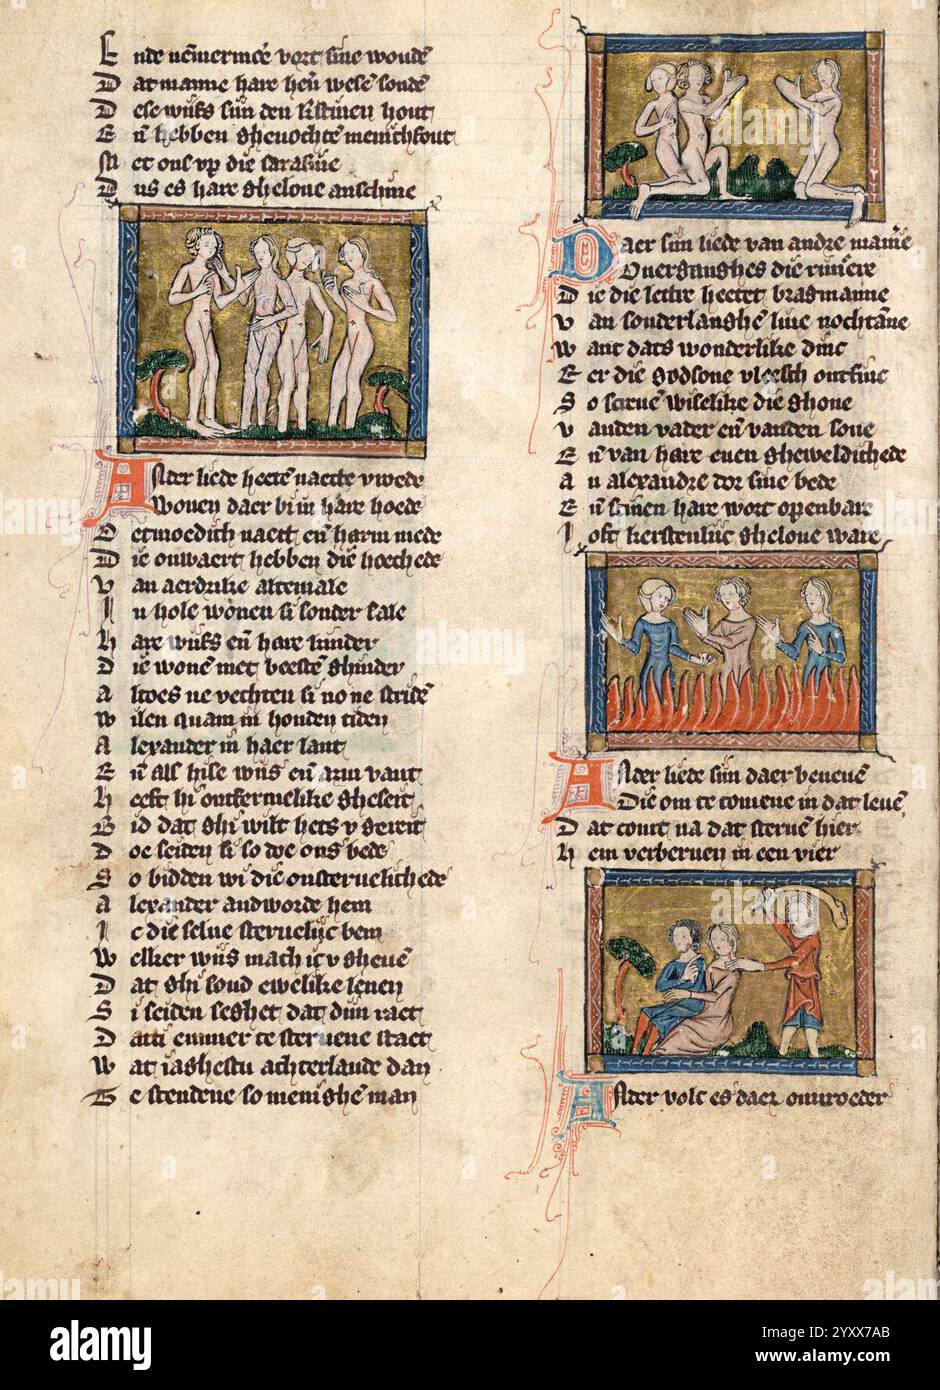 Ende nēmermeē vort sine woude
Dat manne hare heñ wesē soude
Dese wijfs sijn den kerstinen hout
Eñ hebben ghevochtē menichfout
Met ons vp die sarasine
Dus es hare ghelove anschine
Ander liede heetē naecte vwede
Wonen daer bi in hare hoede
Oetmoedich naect eñ harm mede
Die onwaert hebben die hoechede
Van aerdrike altemale
In hole wonen si sonder sale
Hare wijfs eñ hare kinder
Die wonē met beestē ghinder
Altoes ne vechten si no ne stridē
Wilen quam in houden tiden
Alexander in haer lant
Eñ als hise wijs eñ arm vant
Heeft hi ontfermelike gheseit
Bid dat ghi wilt hets v gereit
Doe seiden si so doe ons bede
So bidden wi die onsteruelichede
Alexander andworde hem
Ic die selue steruelijc bem
Welker wijs mach ic v gheuē
Dat ghi soud ewelike leuen
Si seiden seghet dat dijn raet
Datti emmer te steruene staet
Wat iaghestu achterlande dan
Te stendene so menighe man
Daer sijn liede van andre maniē
Ouerganghes die riuiere
Die die lettre heetet bragmanne
Van sonderlanghē liue nochtāne
Want dats wonderlike dinc
Eer die gods one vleesch ontfinc
So screuē wiselike die ghone
Vanden vader eñ vanden sone
Eñ van hare euen gheweldichede
Au alexandre dor sine bede
Eñ scinen hare wort openbare
Ioft kerstenlijc ghelove ware
Ander liede sijn daer beneuē
Die om te comene in dat leuē
Dat comt na dat steruē hier
Hem verbernen in een vier
Ander volc es daer onvroeder
alamy
Image ID: 2YXX7AB
www.alamy.com